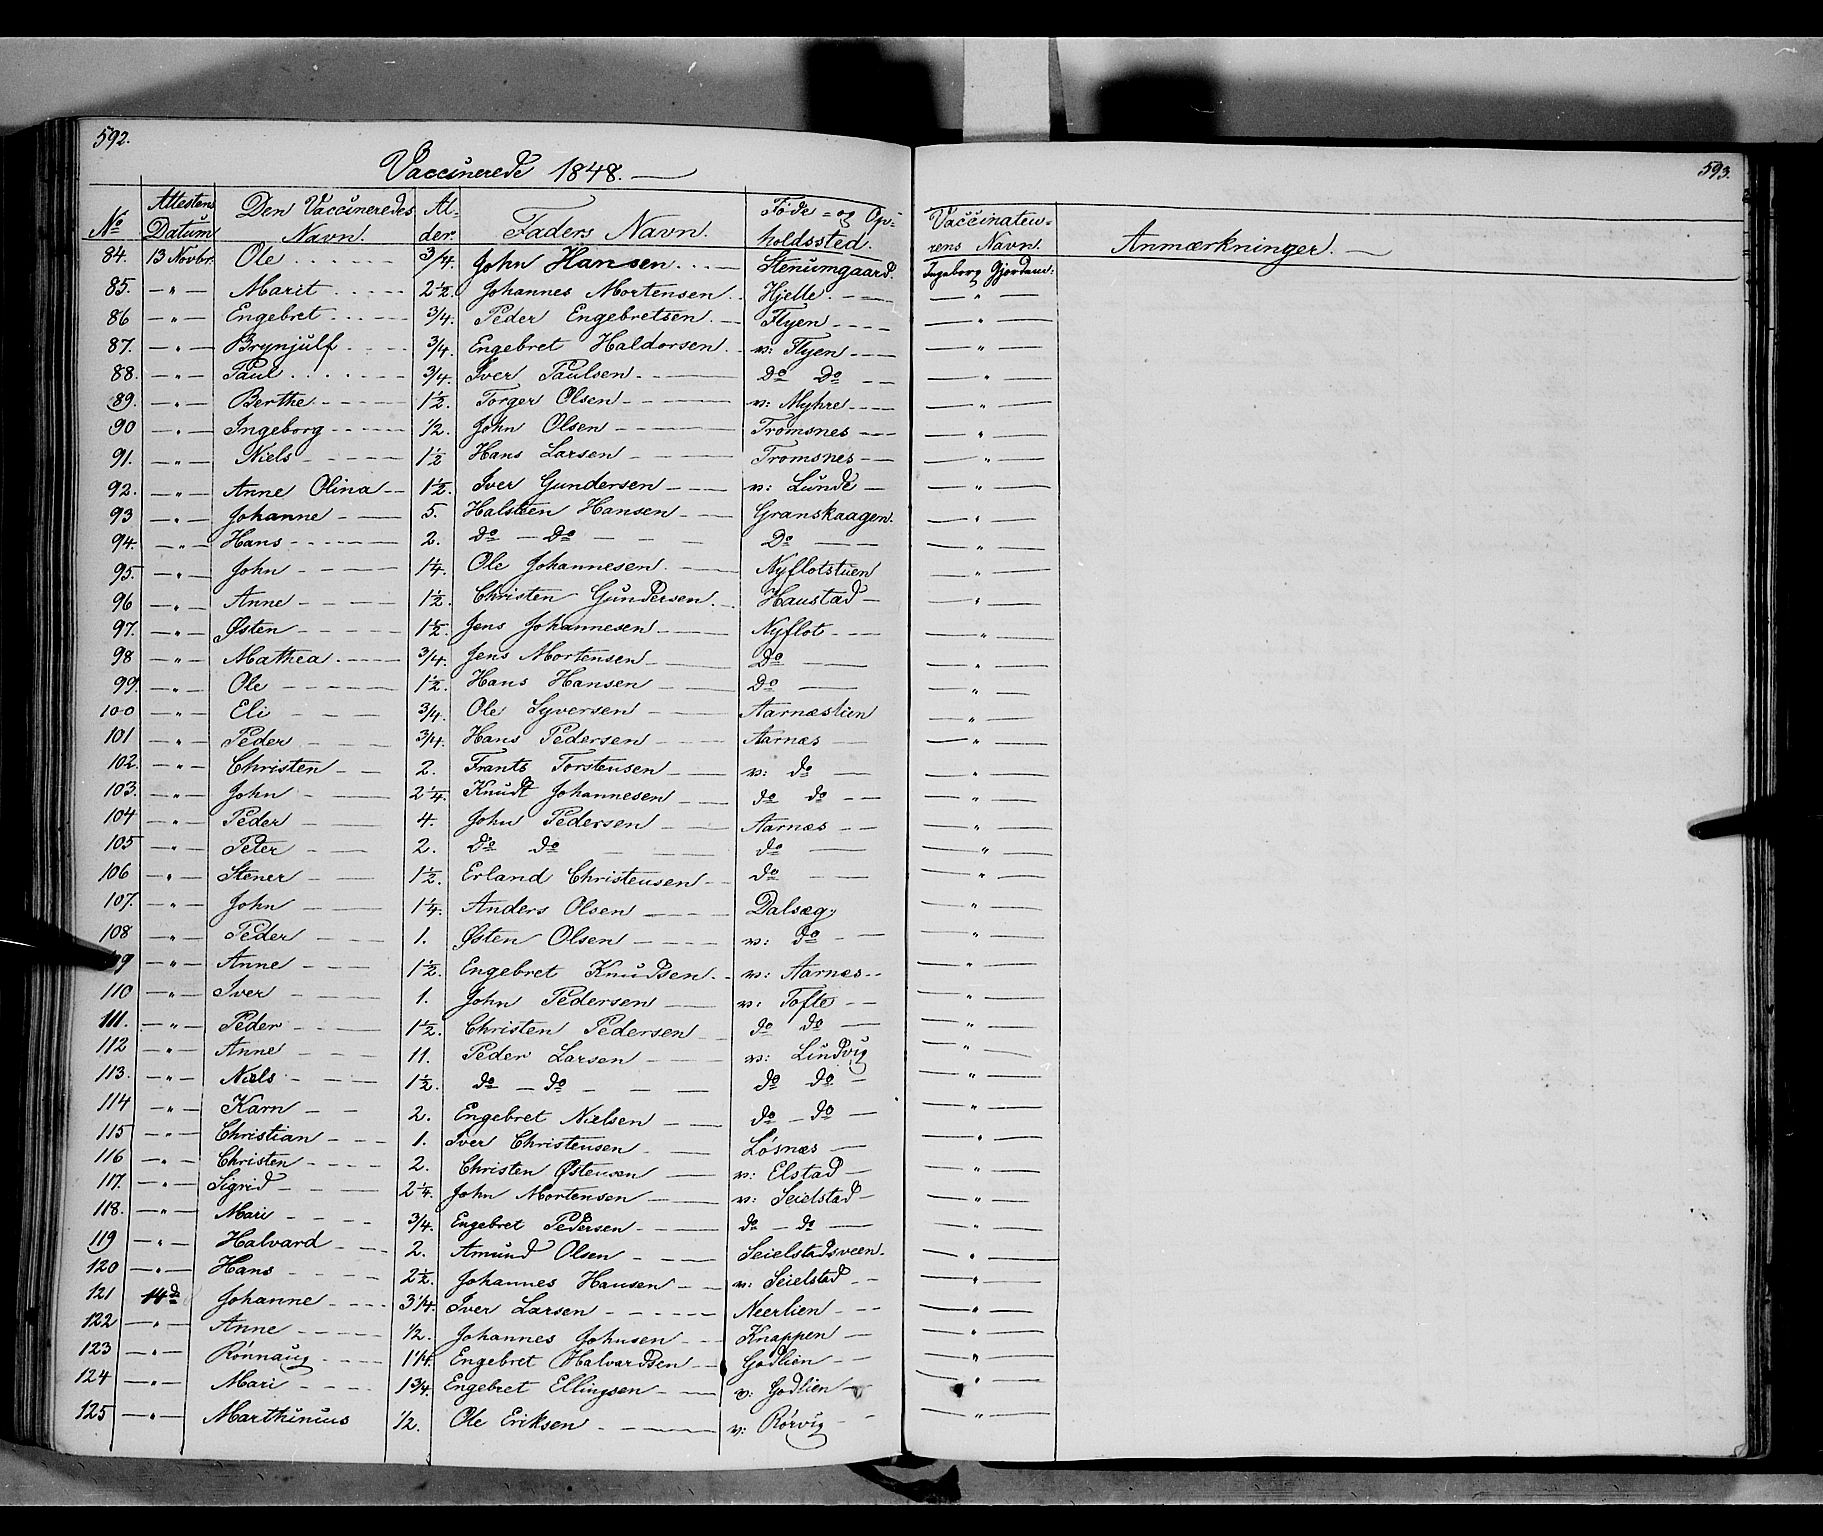 592.
593.
Vaccinerede 1848.
No Attestens Datum Den Vaccineredes Navn. Alder. Faders Navn. Føde- og Opholdssted. Vaccinateurens Navn. Anmærkninger.
84. 13 Novbr. Ole 3/4. John Hansen Stenumgaard. Ingeborg Gjordem:
85. — " — Marit 2 1/2. Johannes Mortensen Hjelle. — " —
86 — " — Engebret 3/4. Peder Engebretsen Flyen — " —
87. — " — Brynjulf 3/4. Engebret Haldorsen v: Flyen — " —
88. — " — Paul 3/4. Iver Paulsen Do Do — " —
89. — " — Berthe 1 1/2. Torger Olsen v: Myhre — " —
90 — " — Ingeborg 1/2. John Olsen Tromsnes — " —
91. — " — Niels 1 1/2 Hans Larsen Tromsnes — " —
92. — " — Anne Olina 1 1/2. Iver Gundersen v: Lunde — " —
93 — " — Johanne 5. Halsteen Hansen Granskaagen. — " —
94. — " — Hans 2. Do — Do Do — " —
95. — " — John 1 1/4. Ole Johannesen Nyflotstuen — " —
96 — " — Anne 1 1/2. Christen Gundersen. Haustad — " —
97. — " — Østen 1 1/2. Jens Johannesen Nyflot — " —
98 — " — Mathea 3/4. Jens Mortensen Do — " —
99. — " — Ole 1 1/2. Hans Hansen Do — " —
100 — " — Eli 3/4. Ole Syversen Aarnæslien — " —
101 — " — Peder 3/4. Hans Pedersen Aarnæs — " —
102. — " — Christen 2. Frants Torstensen v: do — " —
103. — " — John 2 1/4. Knudt Johannesen do do — " —
104 — " — Peder 4. John Pedersen Aarnæs — " —
105 — " — Peter 2. Do do do — " —
106 — " — Stener 1 1/2. Erland Christensen do — " —
107. — " — John 1 1/4. Anders Olsen Dalsæg. — " —
108 — " — Peder 1. Østen Olsen v: do — " —
109 — " — Anne 1 1/2. Engebret Knudsen v: Aarnæs — " —
110 — " — Iver 1. John Pedersen v: Tofte — " —
111. — " — Peder 1 1/2. Christen Pedersen do do — " —
112 — " — Anne 11. Peder Larsen v: Lindvig — " —
113. — " — Niels 1 1/2. do — do do do — " —
114 — " — Karn 2. Engebret Nielsen do — do — " —
115 — " — Christian 1. Iver Christensen Løsnæs — " —
116 — " — Christen 2. Christen Østensen v: Elstad — " —
117. — " — Sigrid 2 1/4. John Mortensen v: Seielstad — " —
118. — " — Mari 3/4. Engebret Pedersen do — do — " —
119 — " — Halvard 2. Amund Olsen Seielstadsveen — " —
120 — " — Hans 2 1/2. Johannes Hansen v: Seielstad — " —
121 14 d Johanne 3 1/4. Iver Larsen Neerlien — " —
122 — " — Anne 1/2. Johannes Johnsen Knappen — " —
123 — " — Rønnaug 1 1/4. Engebret Halvardsen Godlien — " —
124 — " — Mari 1 3/4. Engebret Ellingsen v: Godlien — " —
125 — " — Marthinius 1/2. Ole Eriksen v: Rørvig — " —